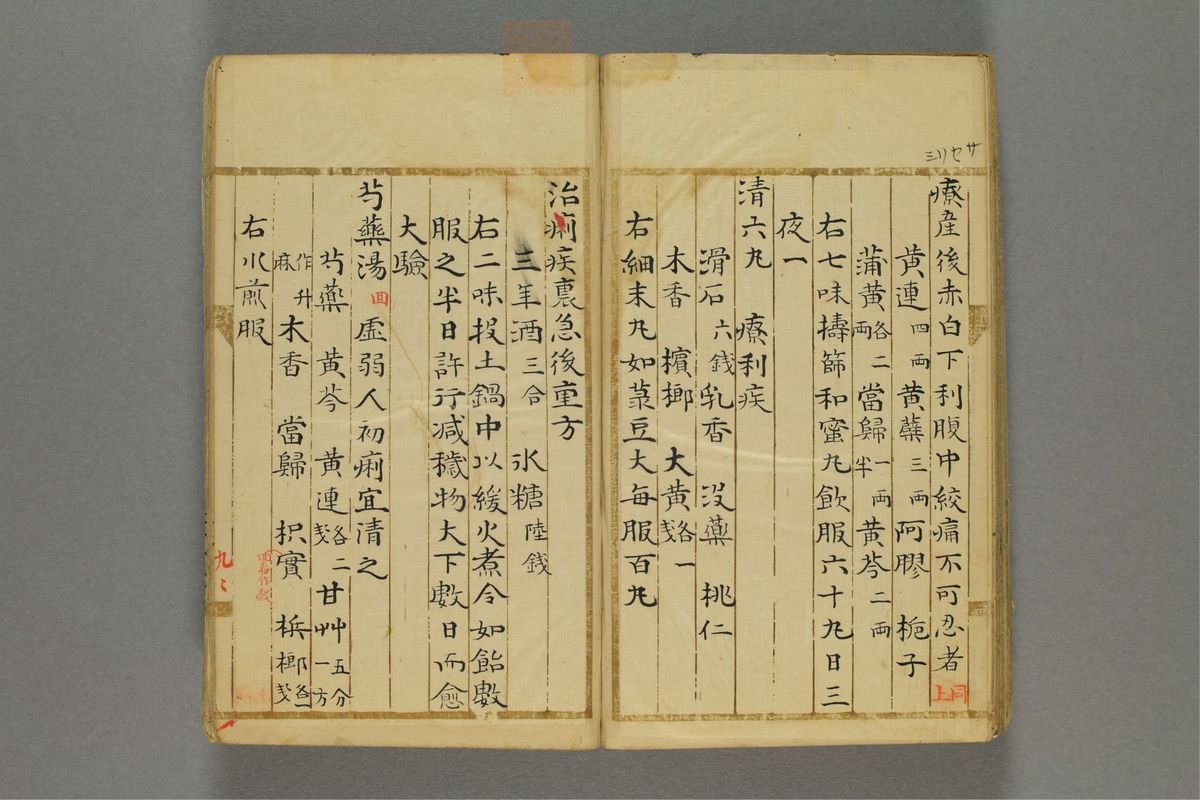 サセリミ
療産後赤白下利腹中絞痛不可忍者 同上
黄連四両黄蘗三両阿膠 梔子
蒲黄各二両當歸一両半黄芩二両
右七味擣篩和蜜丸飲服六十丸日三
夜一
清六丸 療利疾
滑石六錢乳香 没藥 桃仁
木香 檳榔 大黄各一戔
右細末丸如菉豆大每服百丸
治痢疾裏急後重方
三年酒三合 氷糖陸錢
右二味投土鍋中以緩火煮令如飴數
服之半日許行減穢物大下數日而愈
大驗
芍藥湯 回 虚弱人初痢宜清之
芍藥 黄芩 黄連各二戔甘艸五分一方
作升麻 木香 當歸 枳實 梹榔各一戔
右水煎服
九〻